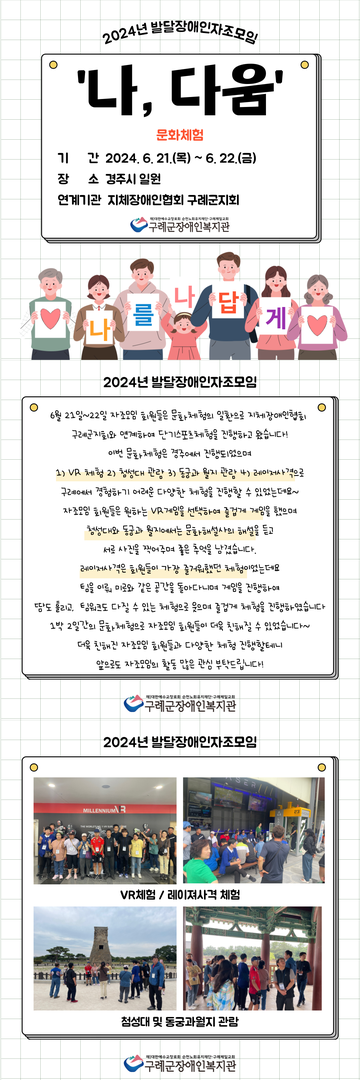 2024년 발달장애인자조모임
'나, 다움'
문화체험
기 간 2024. 6. 21.(목) ~ 6. 22.(금)
장 소 경주시 일원
연계기관 지체장애인협회 구례군지회
구례군장애인복지관
나 를 나 답 게
2024년 발달장애인자조모임
6월 21일~22일 자조모임 회원들은 문화체험의 일환으로 지체장애인협회
구례군지회와 연계하여 단기스포츠체험을 진행하고 왔습니다!
이번 문화체험은 경주에서 진행되었으며
1) VR 체험 2) 첨성대 관람 3) 동궁과 월지 관람 4) 레이저사격으로
구례에서 경험하기 어려운 다양한 체험을 진행할 수 있었는데요~
자조모임 회원들은 원하는 VR게임을 선택하여 즐겁게 게임을 했으며
첨성대와 동궁과 월지에서는 문화해설사의 해설을 듣고
서로 사진을 찍어주며 좋은 추억을 남겼습니다.
레이저사격은 회원들이 가장 즐거워했던 체험이었는데요
팀을 이뤄, 미로와 같은 공간을 돌아다니며 게임을 진행하여
땀도 흘리고, 팀워크도 다질 수 있는 체험으로 웃으며 즐겁게 체험을 진행하였습니다
1박 2일간의 문화체험으로 자조모임 회원들이 더욱 친해질 수 있었습니다~
더욱 친해진 자조모임 회원들과 다양한 체험 진행할테니
앞으로도 자조모임의 활동 많은 관심 부탁드립니다!
구례군장애인복지관
2024년 발달장애인자조모임
MILLENNIUM
VR체험 / 레이져사격 체험
첨성대 및 동궁과월지 관람
구례군장애인복지관